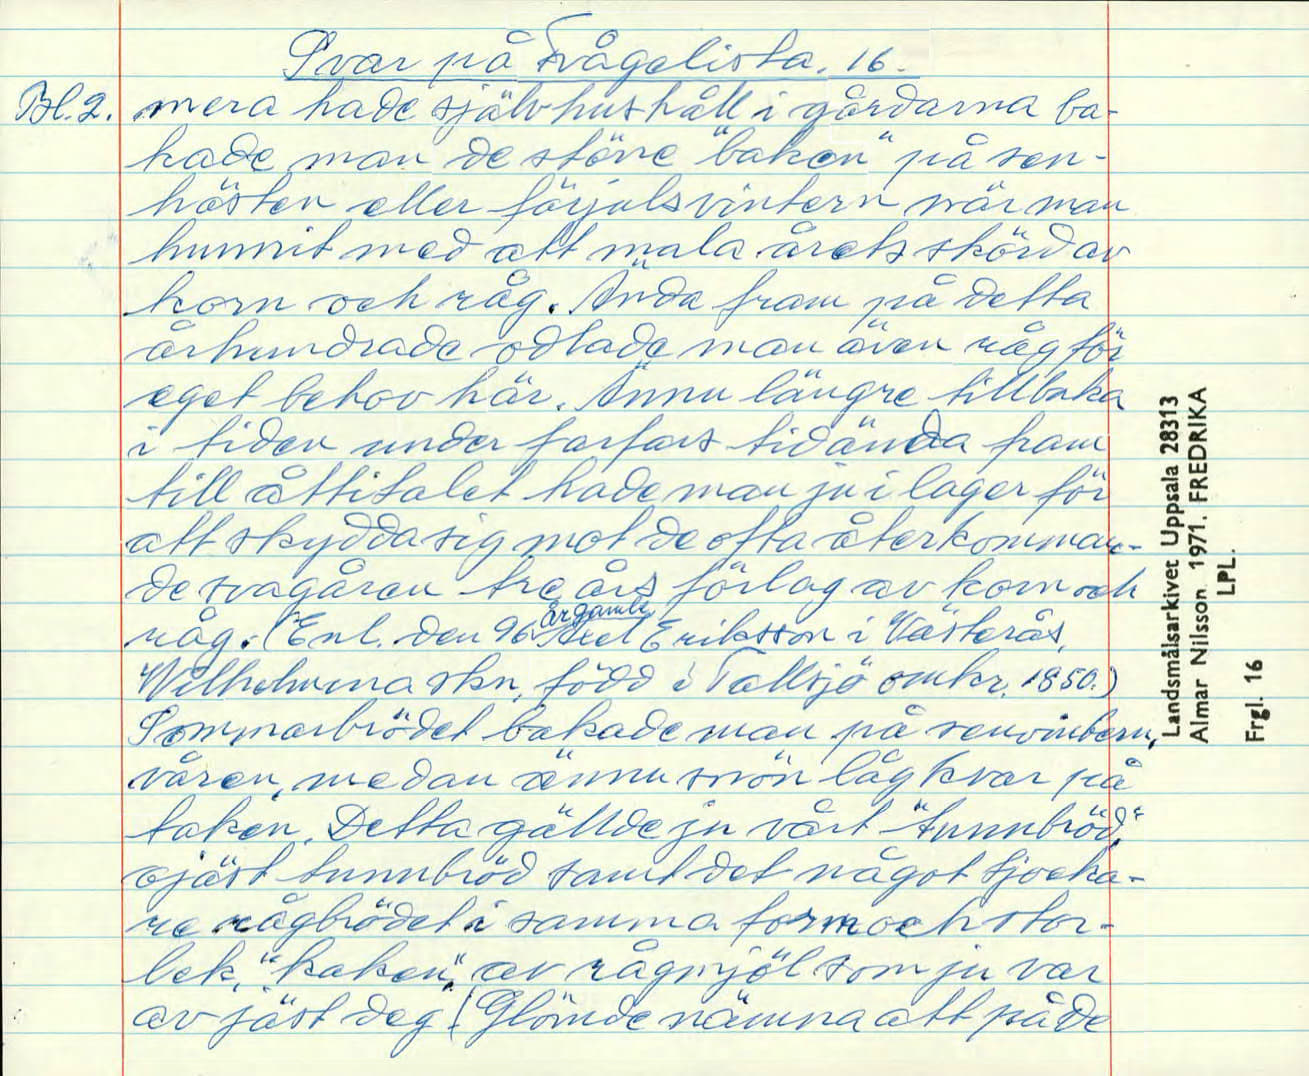 Svar på Frågelista. 16.
Bl. 2. mera hade självhushåll i gårdarna ba-
kade man de större "baken" på sen-
hösten eller förjulsvintern när man
hunnit med att mala årets skörd av
korn och råg. Ända fram på detta
århundrade odlade man även råg för
eget behov här. Ännu längre tillbaka
i tiden under farfars tid ända fram
till åttitalet hade man ju i lager för
att skydda sig mot de ofta återkomman-
de svagåren tre års förlag av korn och
råg. (Enl. den 96 årgamle Axel Eriksson i Västerås,
Wilhelmina skn, född i Tallsjö omkr. 1850.)
Sommarbrödet bakade man på senvintern,
våren, medan ännu snön låg kvar på
taken. Detta gällde ju vårt "tunnbröd",
ojäst tunnbröd samt det något tjocka-
re rågbrödet i samma form och stor-
lek, "kaken", av rågmjöl som ju var
av jäst deg. (Glömde nämna att på de
Landsmålsarkivet Uppsala 28313
Almar Nilsson. 1971. FREDRIKA
LPL.
Frgl. 16